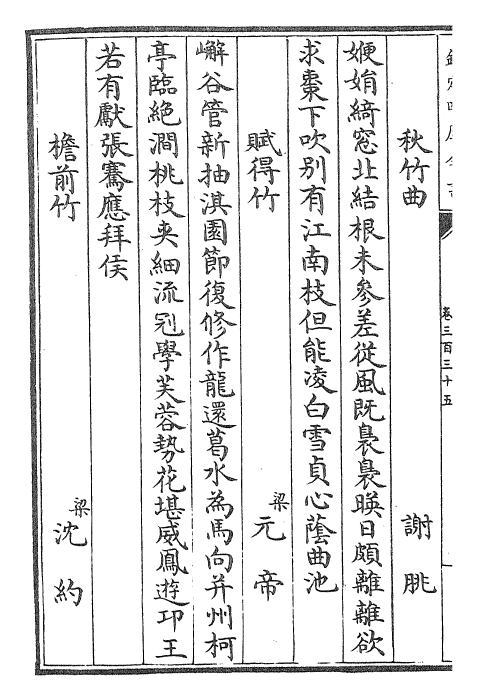 卷三百三十五
秋竹曲 謝朓
㛹娟綺窓北結根未參差從風既裊裊暎日頗離離欲
求棗下吹别有江南枝但能凌白雪貞心蔭曲池
賦得竹 梁元帝
嶰谷管新抽淇園節復修作龍還葛水為馬向并州柯
亭臨絶澗桃枝夾細流冠學芙蓉勢花堪威鳳遊卭王
若有獻張騫應拜侯
檐前竹 梁沈約